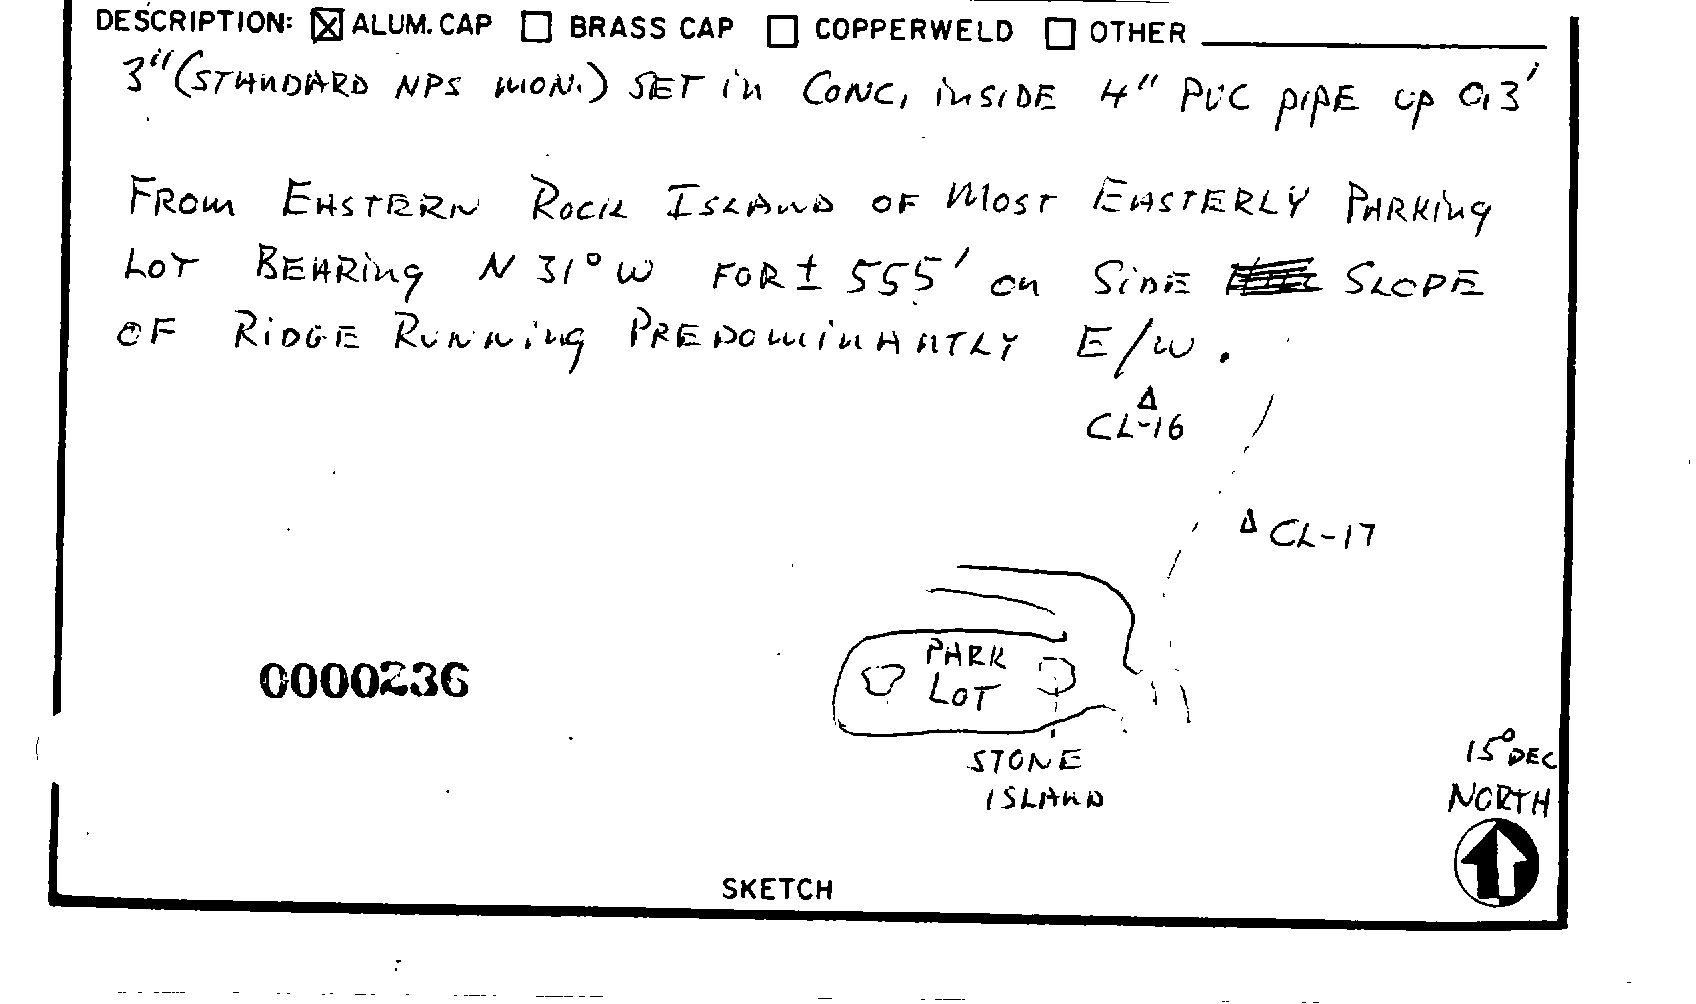 DESCRIPTION: ☒ ALUM. CAP ☐ BRASS CAP ☐ COPPERWELD ☐ OTHER
3" (STANDARD NPS MON.) SET in CONC, inSIDE 4" PVC pipE up 0.3'
FROM EASTERN ROCK ISLAND OF MOST EASTERLY PARKing
LOT BEARing N 31° W FOR ± 555' on SiDE SLOPE
OF RiDGE RUNNing PREDOMINANTLY E/W.
CL-16
CL-17
PARK
LOT
0000236
STONE
ISLAND
15° DEC
NORTH
SKETCH